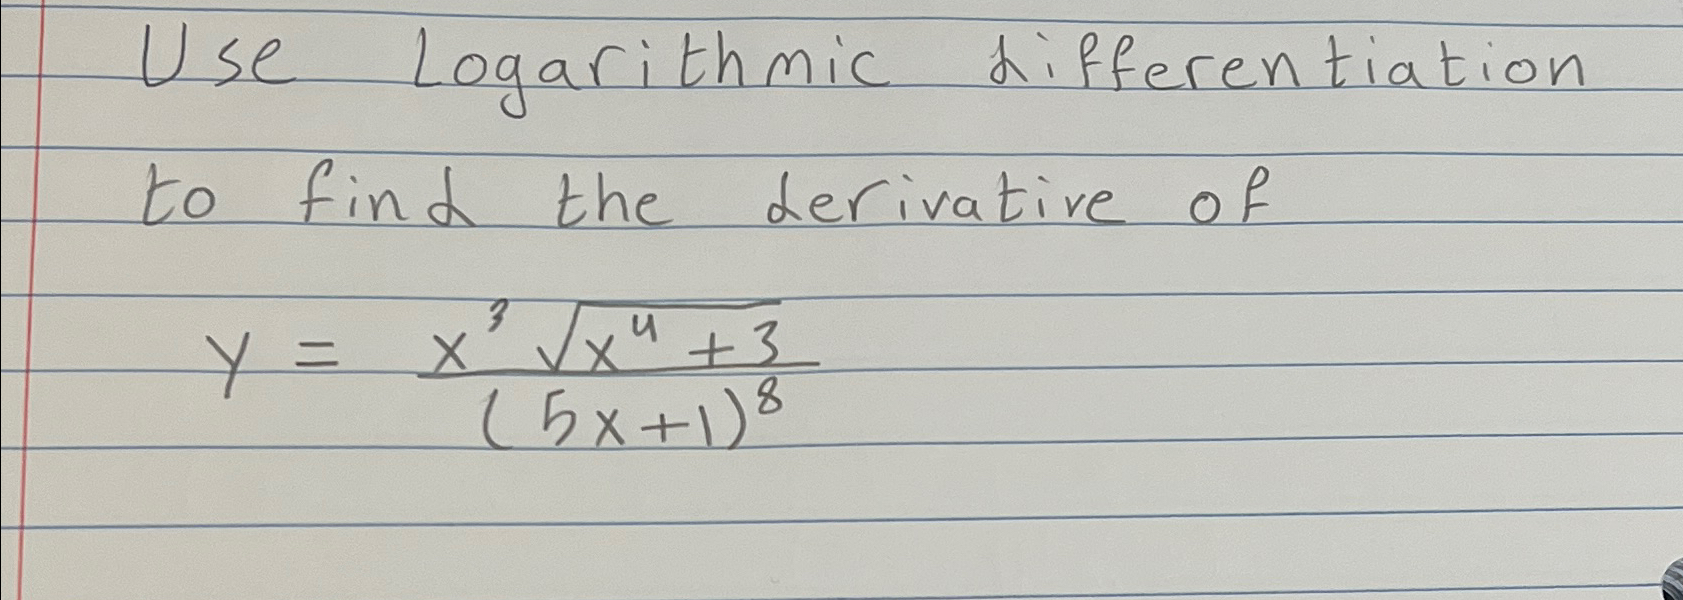 Use Logarithmic differentiation
to find the derivative of
y = x³ √(x⁴ + 3) / (5x+1)⁸